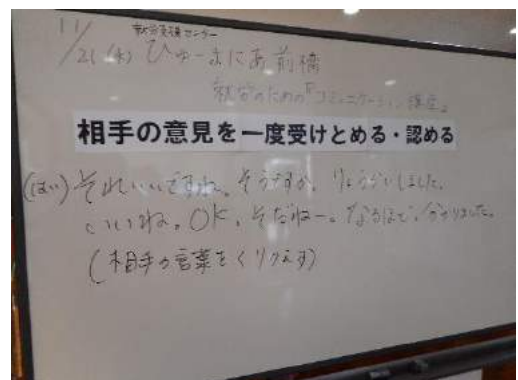 就労支援センター
11/21 (木) ひゅーまにあ前橋
就労のための『コミュニケーション講座』
相手の意見を一度受けとめる・認める
(はい) それいいですね。そうですか。りょうかいしました。
いいね。OK。そだねー。なるほど。わかりました。
(相手の言葉をくりかえす)